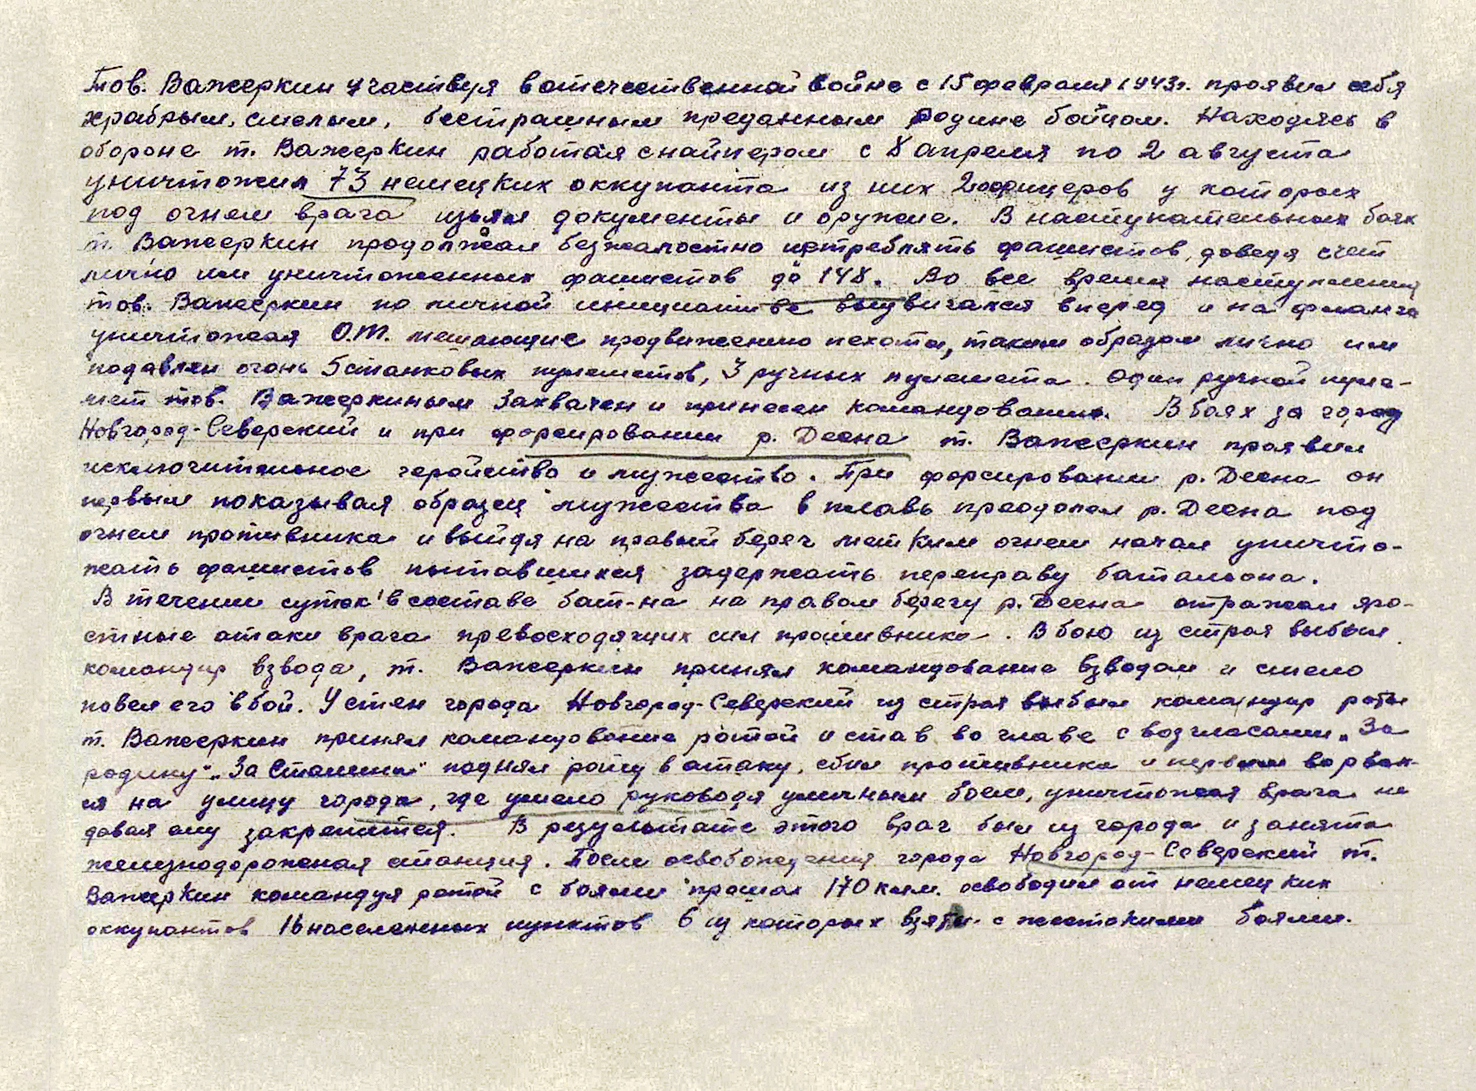 Тов. Важеркин участвуя в отечественной войне с 15 февраля 1943г. проявил себя
храбрым, смелым, бесстрашным преданным родине бойцом. Находясь в
обороне т. Важеркин работая снайпером с 8 апреля по 2 августа
уничтожил 73 немецких оккупанта из них 2 офицеров у которых
под огнем врага изъял документы и оружие. В наступательных боях
т. Важеркин продолжал безжалостно истреблять фашистов, доведя счет
лично им уничтоженных фашистов до 148. Во все время наступления
тов. Важеркин по личной инициативе выдвигался вперед и на фланги
уничтожая О.Т. мешающие продвижению пехоты, таким образом лично им
подавлен огонь 5 станковых пулеметов, 3 ручных пулемета. Один ручной пуле-
мет тов. Важеркиным захвачен и принесен командованию. В боях за город
Новгород-Северский и при форсировании р. Десна т. Важеркин проявил
исключительное геройство и мужество. При форсировании р. Десна он
первым показывая образец мужества в плавь преодолел р. Десна под
огнем противника и выйдя на правый берег метким огнем начал уничто-
жать фашистов пытавшихся задержать переправу батальона.
В течении суток в составе бат-на на правом берегу р. Десна отражал яро-
стные атаки врага превосходящих сил противника. В бою из строя выбыл
командир взвода, т. Важеркин принял командование взводом и смело
повел его в бой. У стен города Новгород-Северский из строя выбыл командир роты
т. Важеркин принял командование ротой и став во главе с возгласами „За
родину“ „За Сталина“ поднял роту в атаку, сбил противника и первым ворвал-
ся на улицу города, где умело руководя уличным боем, уничтожая врага не
давая ему закрепится. В результате этого враг был из города и занята
железнодорожная станция. После освобождения города Новгород-Северский т.
Важеркин командуя ротой с боями прошел 170 клм. освободил от немецких
оккупантов 16 населенных пунктов 6 из которых взяты с жестокими боями.